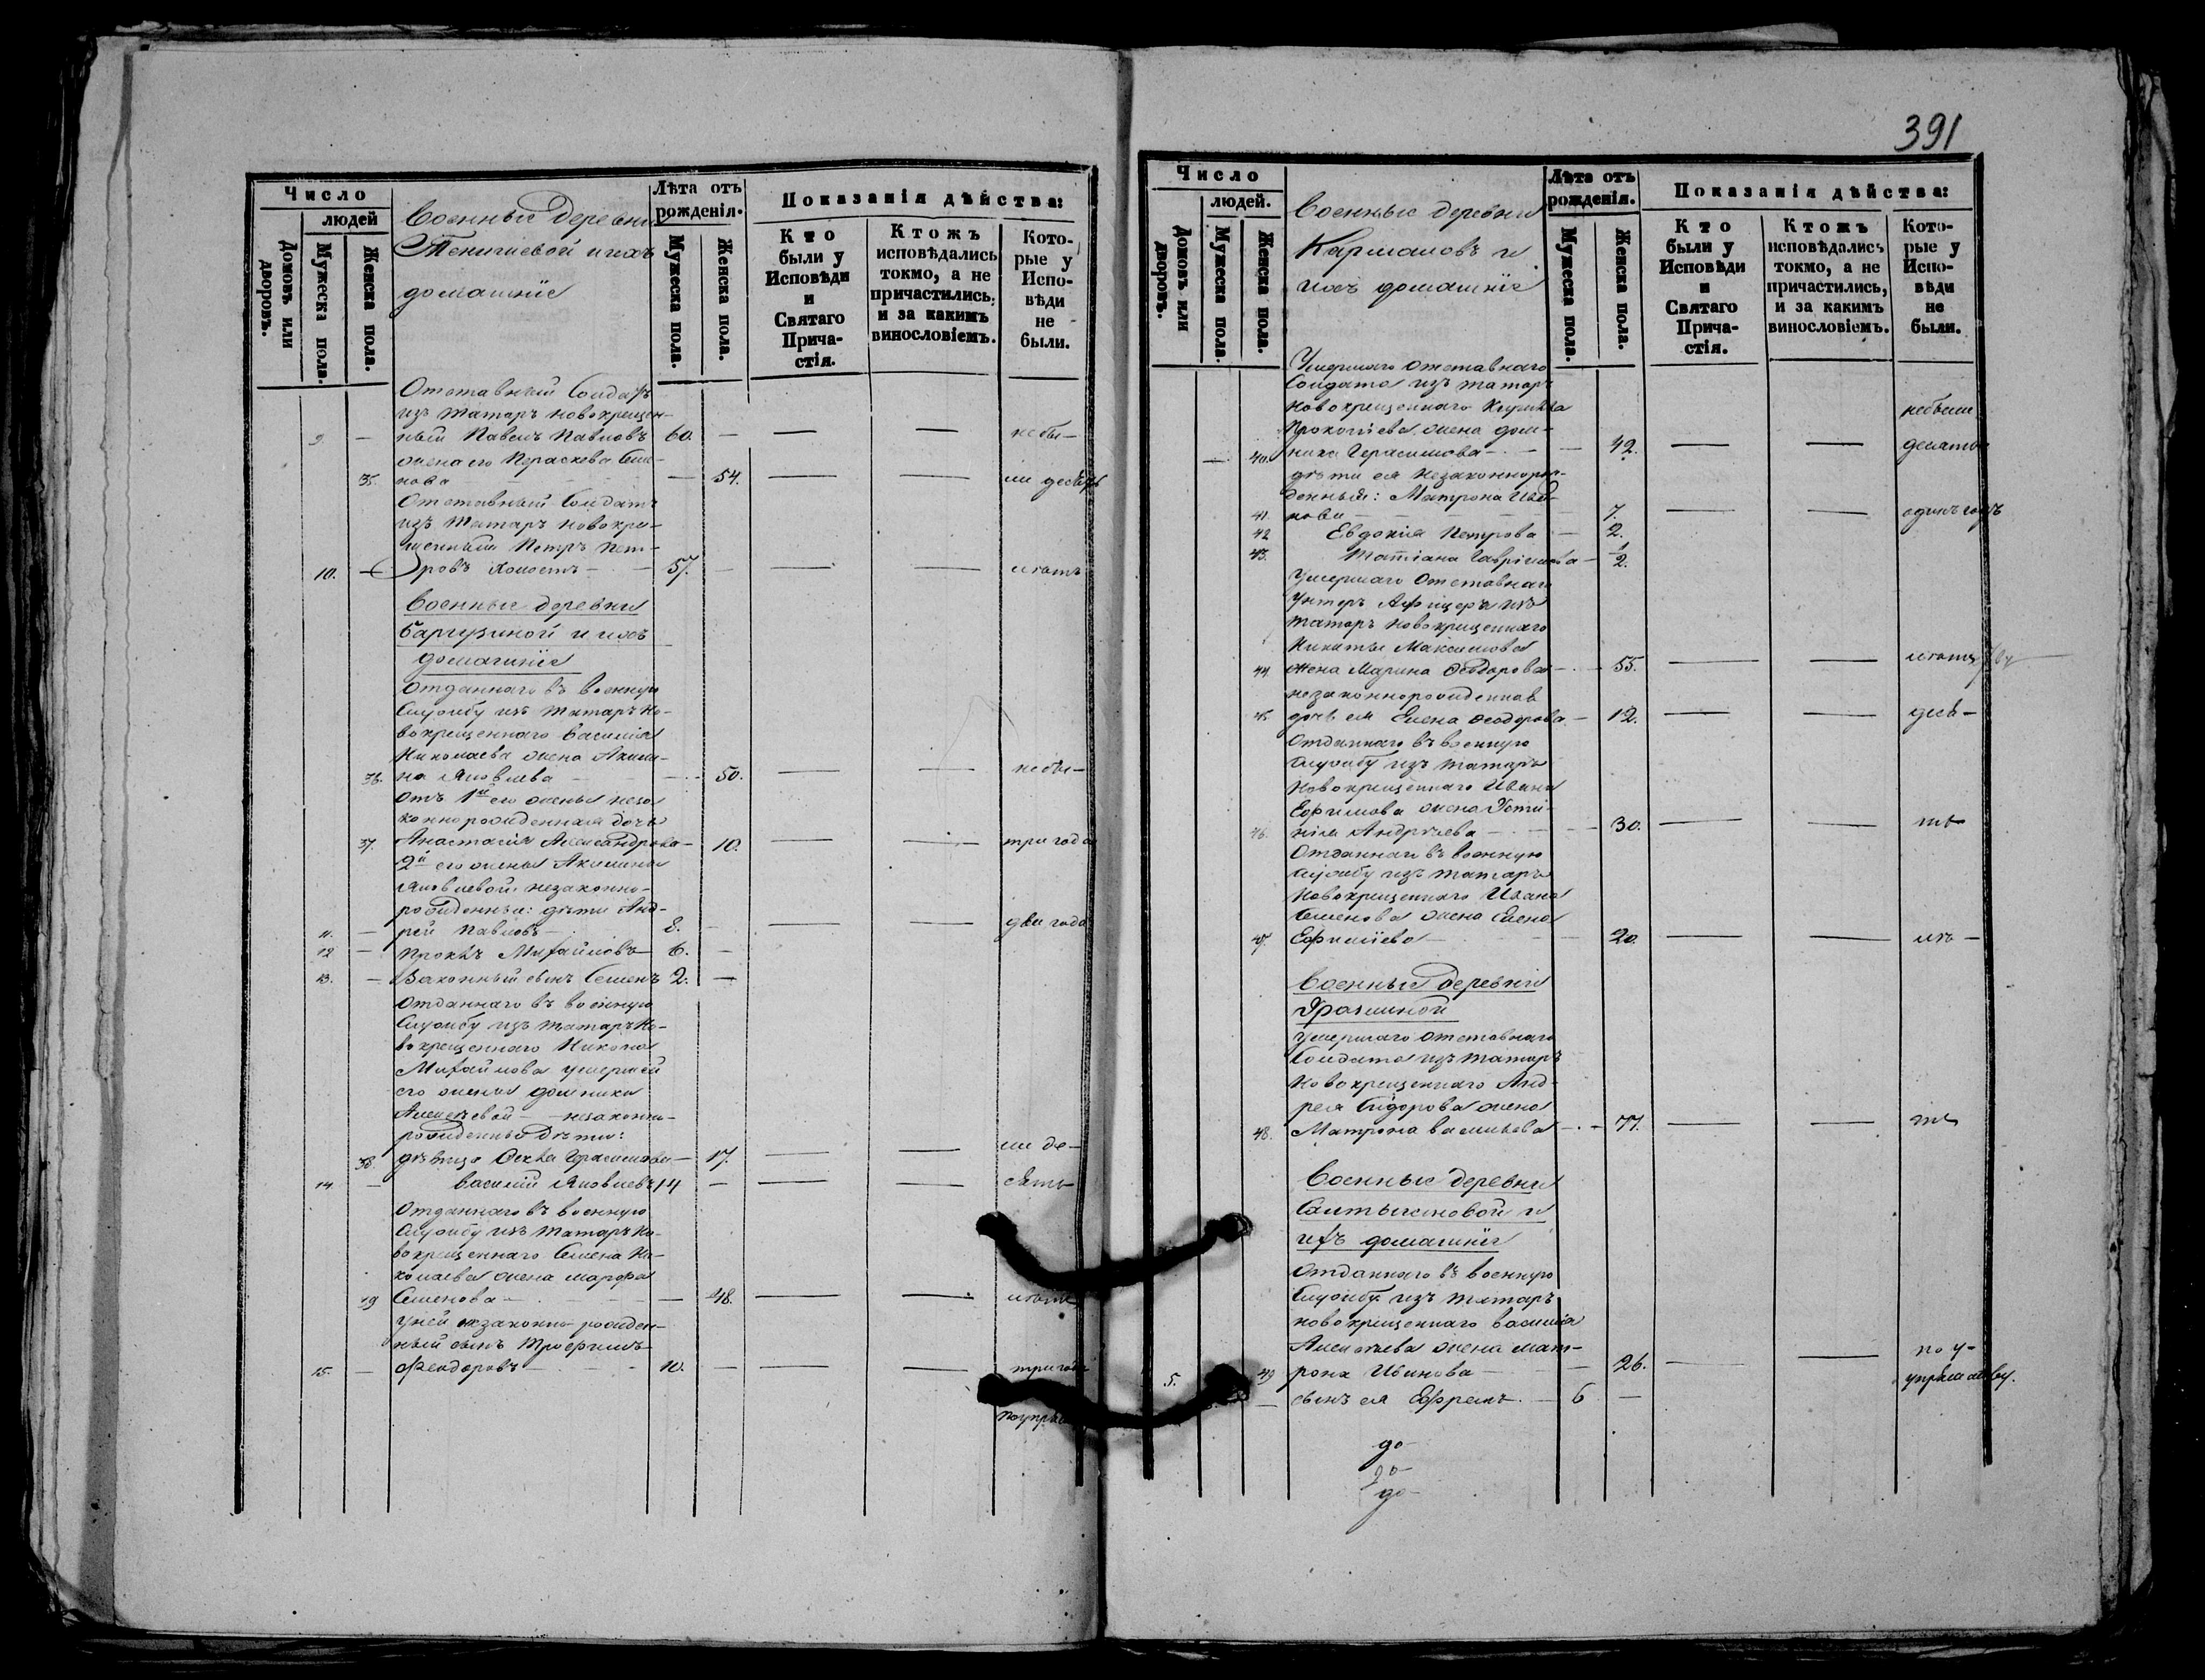 Число
людей
Домовъ или дворовъ.
Мужеска пола.
Женска пола.
Военные деревни
ихъ
домашніе
Лѣта отъ рожденія.
Мужеска пола.
Женска пола.
Показанія дѣйства:
Кто были у Исповѣди и Святаго Прича-стія.
Ктожъ исповѣдались токмо, а не причастились, и за какимъ винословіемъ.
Кото-рые у Испо-вѣди не были.
Отставный Солдатъ
изъ татаръ новокрещен-
9. — ный Павелъ Павловъ 60. — — — небы-
жена его Параскева Сем-
35. нова — 54. — — ли десять
Отставный Солдатъ
изъ татаръ новокре-
щенный Петръ Пет-
10. — ровъ холостъ — 57. — — — лѣтъ
Военные деревни
Баргузиной и ихъ
домашніе
Отданнаго въ военную
службу изъ татаръ но-
вокрещеннаго Василія
Николаева жена Акили-
36. на Яковлева — 50. — — небы-
отъ 1й его жены неза-
коннорожденная дочь
37. Анастасія Александрова — 10. — — три года
2й его жены Акилины
Яковлевой незаконно-
рожденные: дѣти Анд-
11. — рей Павловъ — 8. — — — два года
12 — Михайловъ 6. —
13. — Законный сынъ Семенъ 2. —
Отданнаго въ военную
службу изъ татаръ но-
вокрещеннаго Никона
Михайлова умершей
его жены Домники
Алексѣевой — незаконно-
рожденные дѣти:
38. дѣвица Герасимова — 17. — — ли де-
14. — Василій Яковлевъ 14 — — — сять
Отданнаго въ военную
службу изъ татаръ но-
вокрещеннаго Семена Ни-
колаева жена Марфа
39 Семенова — — 48. — — лѣтъ
У ней незаконно рожден-
ный сынъ Трофимъ
15. — Феодоровъ — 10. — — — три года
391
Число
людей.
Домовъ или дворовъ.
Мужеска пола.
Женска пола.
Военные деревни
Кармановъ и
ихъ домашніе
Лѣта отъ рожденія.
Мужеска пола.
Женска пола.
Показанія дѣйства:
Кто были у Исповѣди и Святаго Прича-стія.
Ктожъ исповѣдались токмо, а не причастились, и за какимъ винословіемъ.
Кото-рые у Испо-вѣди не были.
Умершаго отставнаго
Солдата изъ татаръ
новокрещеннаго небыли
Прокопіева жена Дом-
— 40. ника Герасимова — — 42. — — десять
дѣти ея незаконнорож-
денныя: Матрона Ива-
41. нова — — 7. — — одинъ годъ
42 Евдокія Петрова — 2.
43. Татіана Гавріилова — 1/2.
Умершаго отставнаго
Унтеръ Афицера изъ
татаръ новокрещеннаго
Никиты Максимова
44. жена Марина Феодорова — 55. — —
незаконнорожденная
45. дочь ея Елена Феодорова — 12. — —
Отданнаго въ военную
службу изъ татаръ
новокрещеннаго Ивана
Ефимова жена Усти-
46. нія Андреева — — 30. — —
Отданнаго въ военную
службу изъ татаръ
новокрещеннаго Ивана
Семенова жена Елена
47. Ефиміева — — 20. — —
Военные деревни
Умершаго отставнаго
Солдата изъ татаръ
новокрещеннаго Анд-
рея Сидорова жена
48. Матрона Васильева — — 77. — —
Военные деревни
Салтыгановой и
ихъ домашніе
Отданнаго въ военную
службу изъ татаръ
новокрещеннаго Василія
Алексѣева жена Мат- по у-
5. 49 рона Иванова — 26. — — прямству.
— сынъ ея Ефремъ. — 6 —
до-
до-
до-